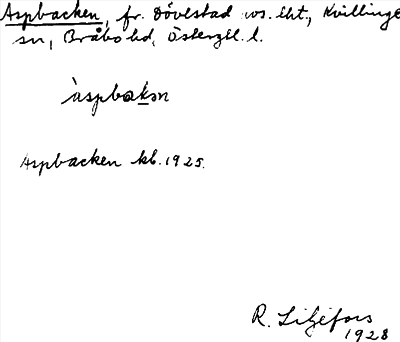 Aspbacken, fr. Dövestad ws. äht., Kvillinge
sn, Bråbo hd, Östergtl. l.
àspbakən
Aspbacken kb. 1925.
R. Liljefors
1928